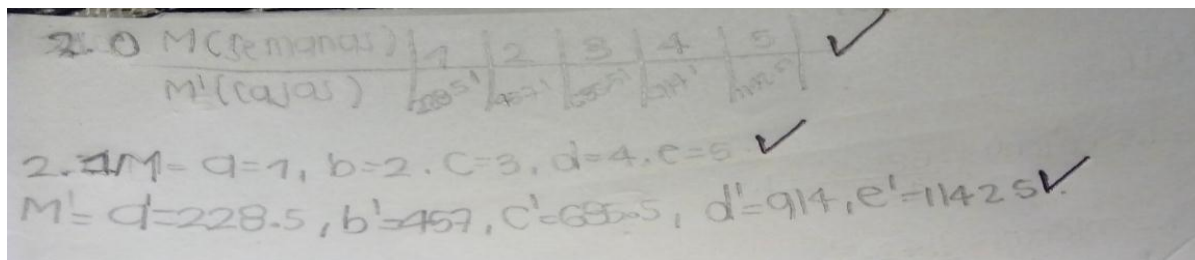 2.0 M(semanas) 1 2 3 4 5
M'(cajas) 228.5 457 685.5 914 1142.5
2.1 M= a=1, b=2. C=3, d=4, e=5
M'= a'=228.5, b'=457, c'=685.5, d'=914, e'=1142 5